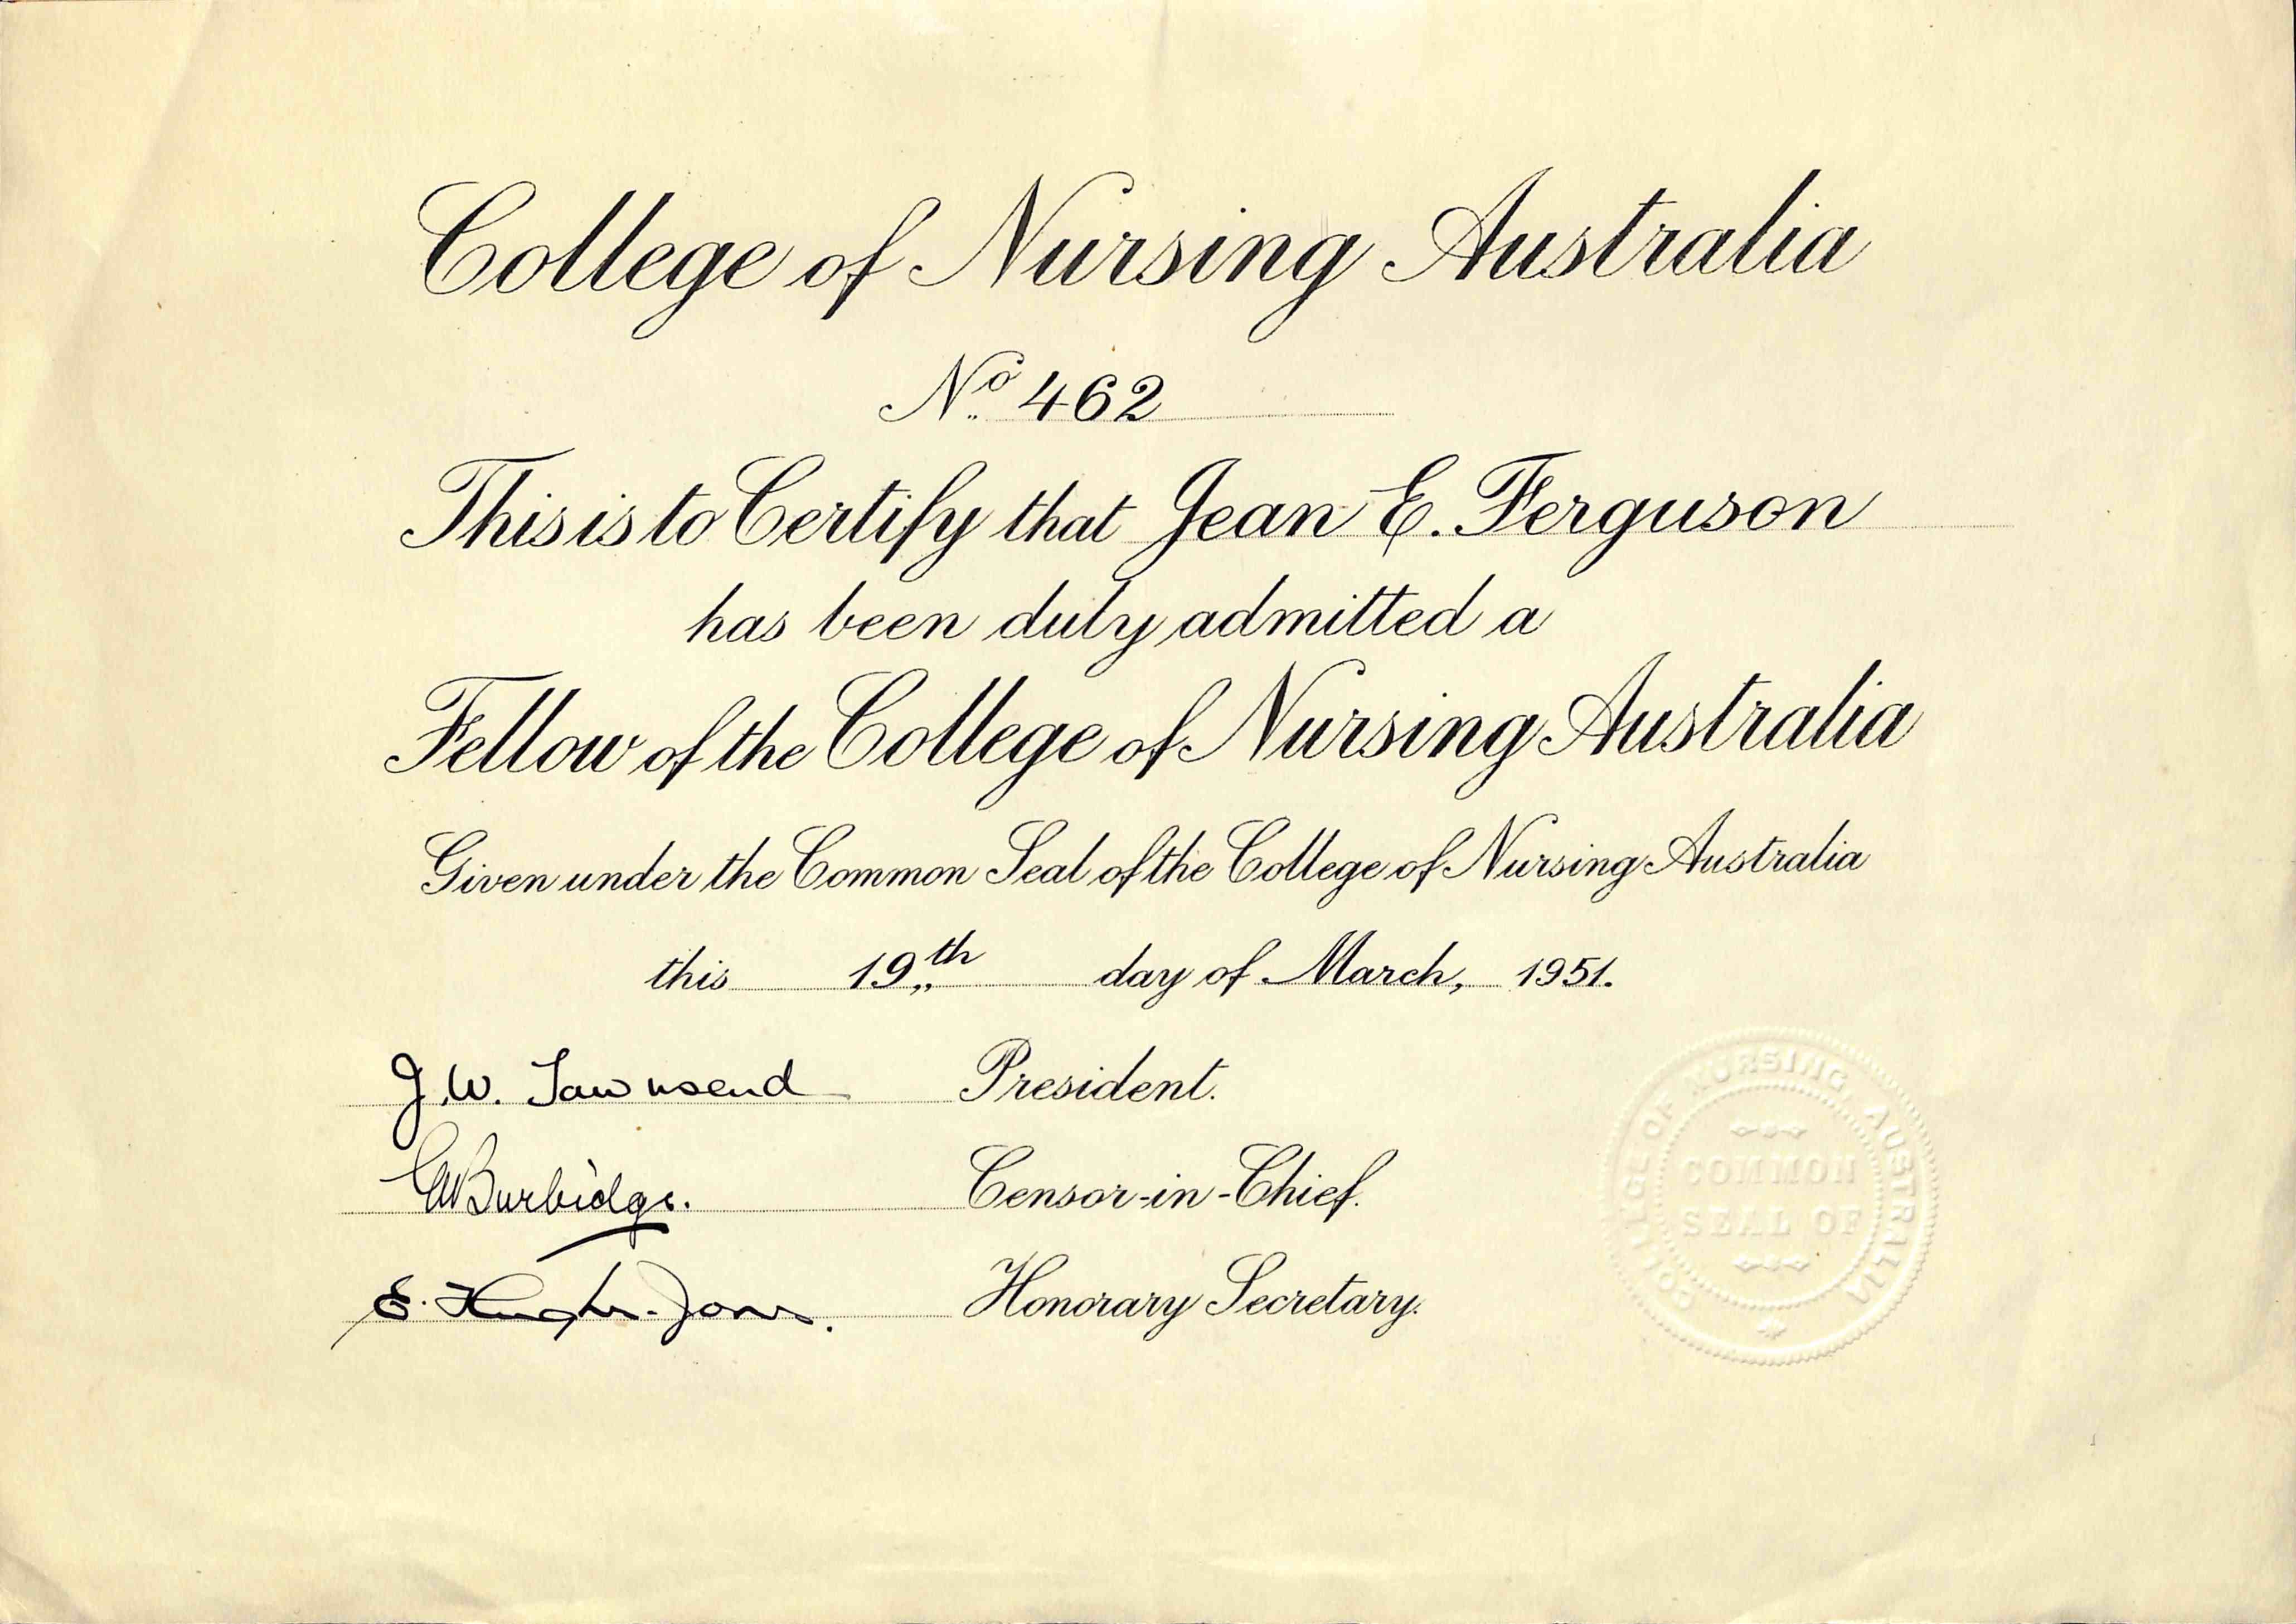 College of Nursing Australia
No. 462
This is to Certify that Jean E. Ferguson
has been duly admitted a
Fellow of the College of Nursing Australia
Given under the Common Seal of the College of Nursing Australia
this 19th day of March, 1951.
J.W. Townsend President.
Burbidge. Censor-in-Chief.
E. Hughes-Jones. Honorary Secretary.
COLLEGE OF NURSING, AUSTRALIA
COMMON
SEAL OF